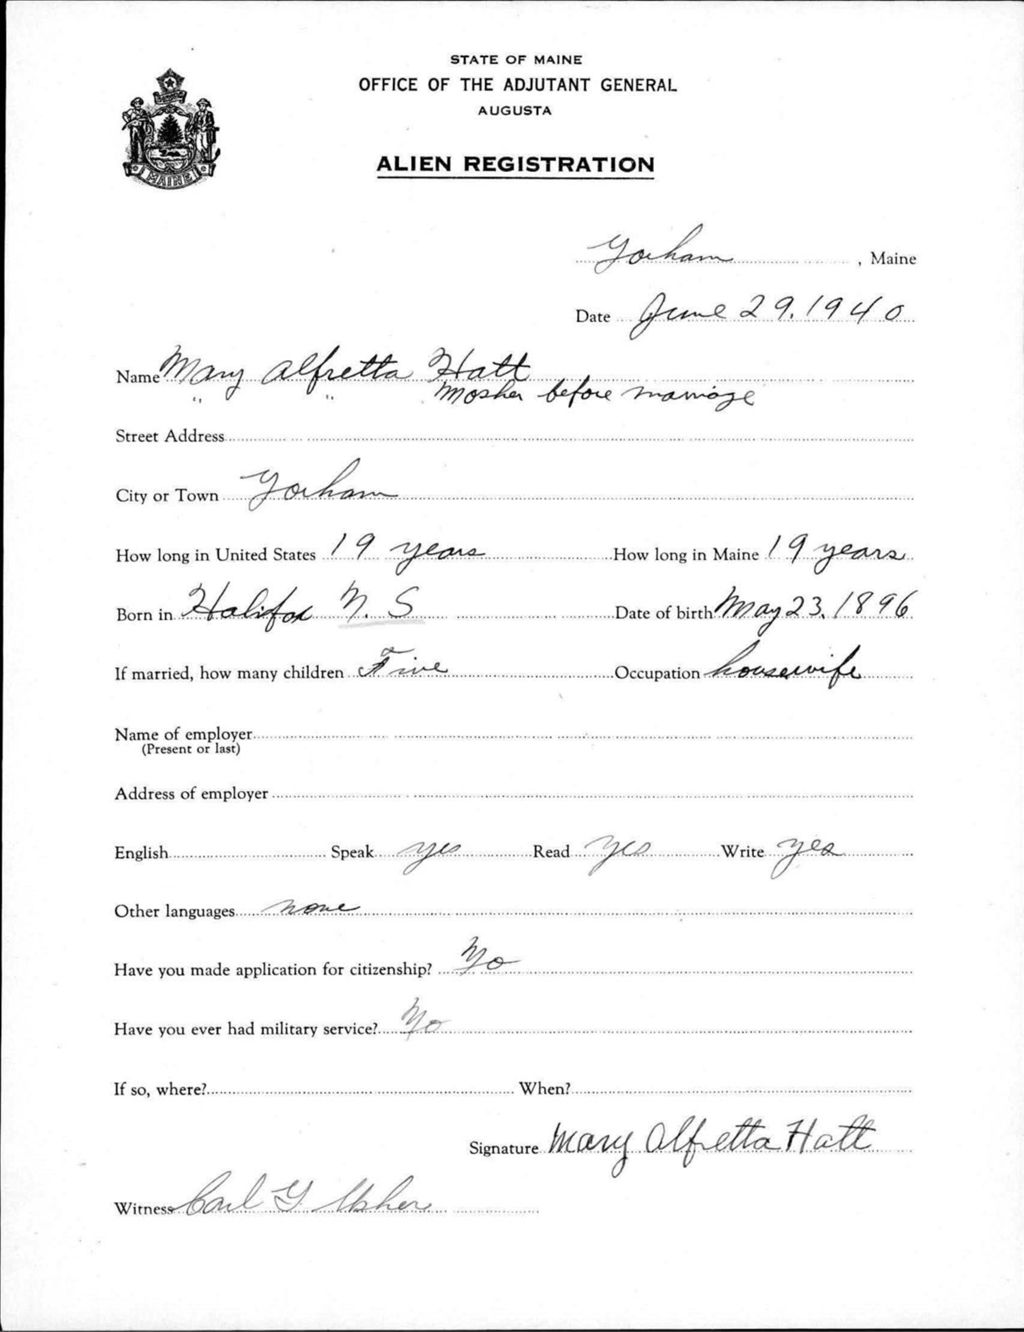 STATE OF MAINE
OFFICE OF THE ADJUTANT GENERAL
AUGUSTA
ALIEN REGISTRATION
MAINE
Gorham, Maine
Date June 29, 1940
Name Mary Alfretta Hatt
" " Mosher before marriage
Street Address
City or Town Gorham
How long in United States 19 years How long in Maine 19 years
Born in Halifax N. S Date of birth May 23, 1896
If married, how many children Five Occupation housewife
Name of employer
(Present or last)
Address of employer
English Speak yes Read yes Write yes
Other languages none
Have you made application for citizenship? No
Have you ever had military service? No
If so, where? When?
Signature Mary Alfretta Hatt
Witness Carl G Usher